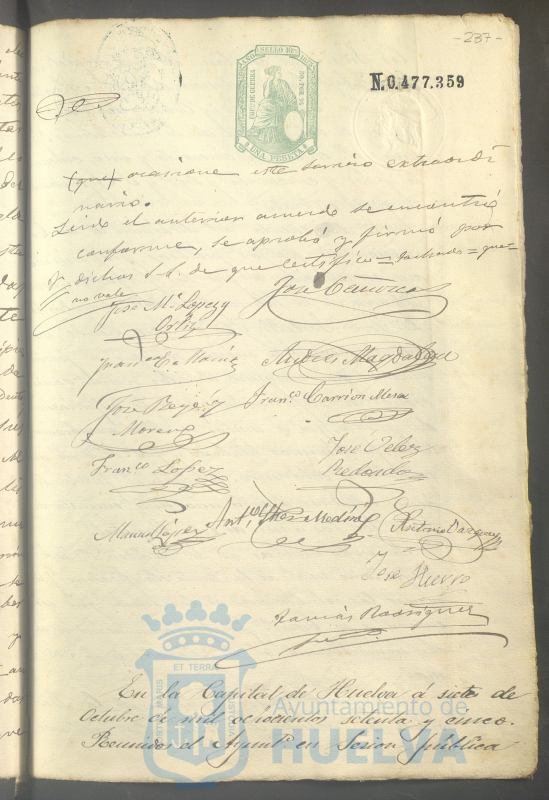 -237-
SELLO 10º
AÑO
IMPTO. DE GUERRA
UNA PESETA
N.0.477.359
(que) ocasione este servicio extraordi
nario.
Leido el anterior acuerdo se encontró
conforme, se aprobó y firmó por
dichos S.S. de que certifico = tachado = que =
no vale
José Mª Lopez y
Ortiz
José
Juan
Andres Magdalena
José Reyes y
Moreno
Franco Carrion Mesa
José Velez
Redondo
Franco Lopez
Manuel López
Antº
Medina
Antonio Vazquez
José Hierro
Tomás Rodriguez
En la Capital de Huelva á siete de
Octubre de mil ochocientos setenta y cinco.
Reunidos el Ayuntº en Sesion pública
ET TERRÆ
MARIS
CUSTODIA
Ayuntamiento de
HUELVA